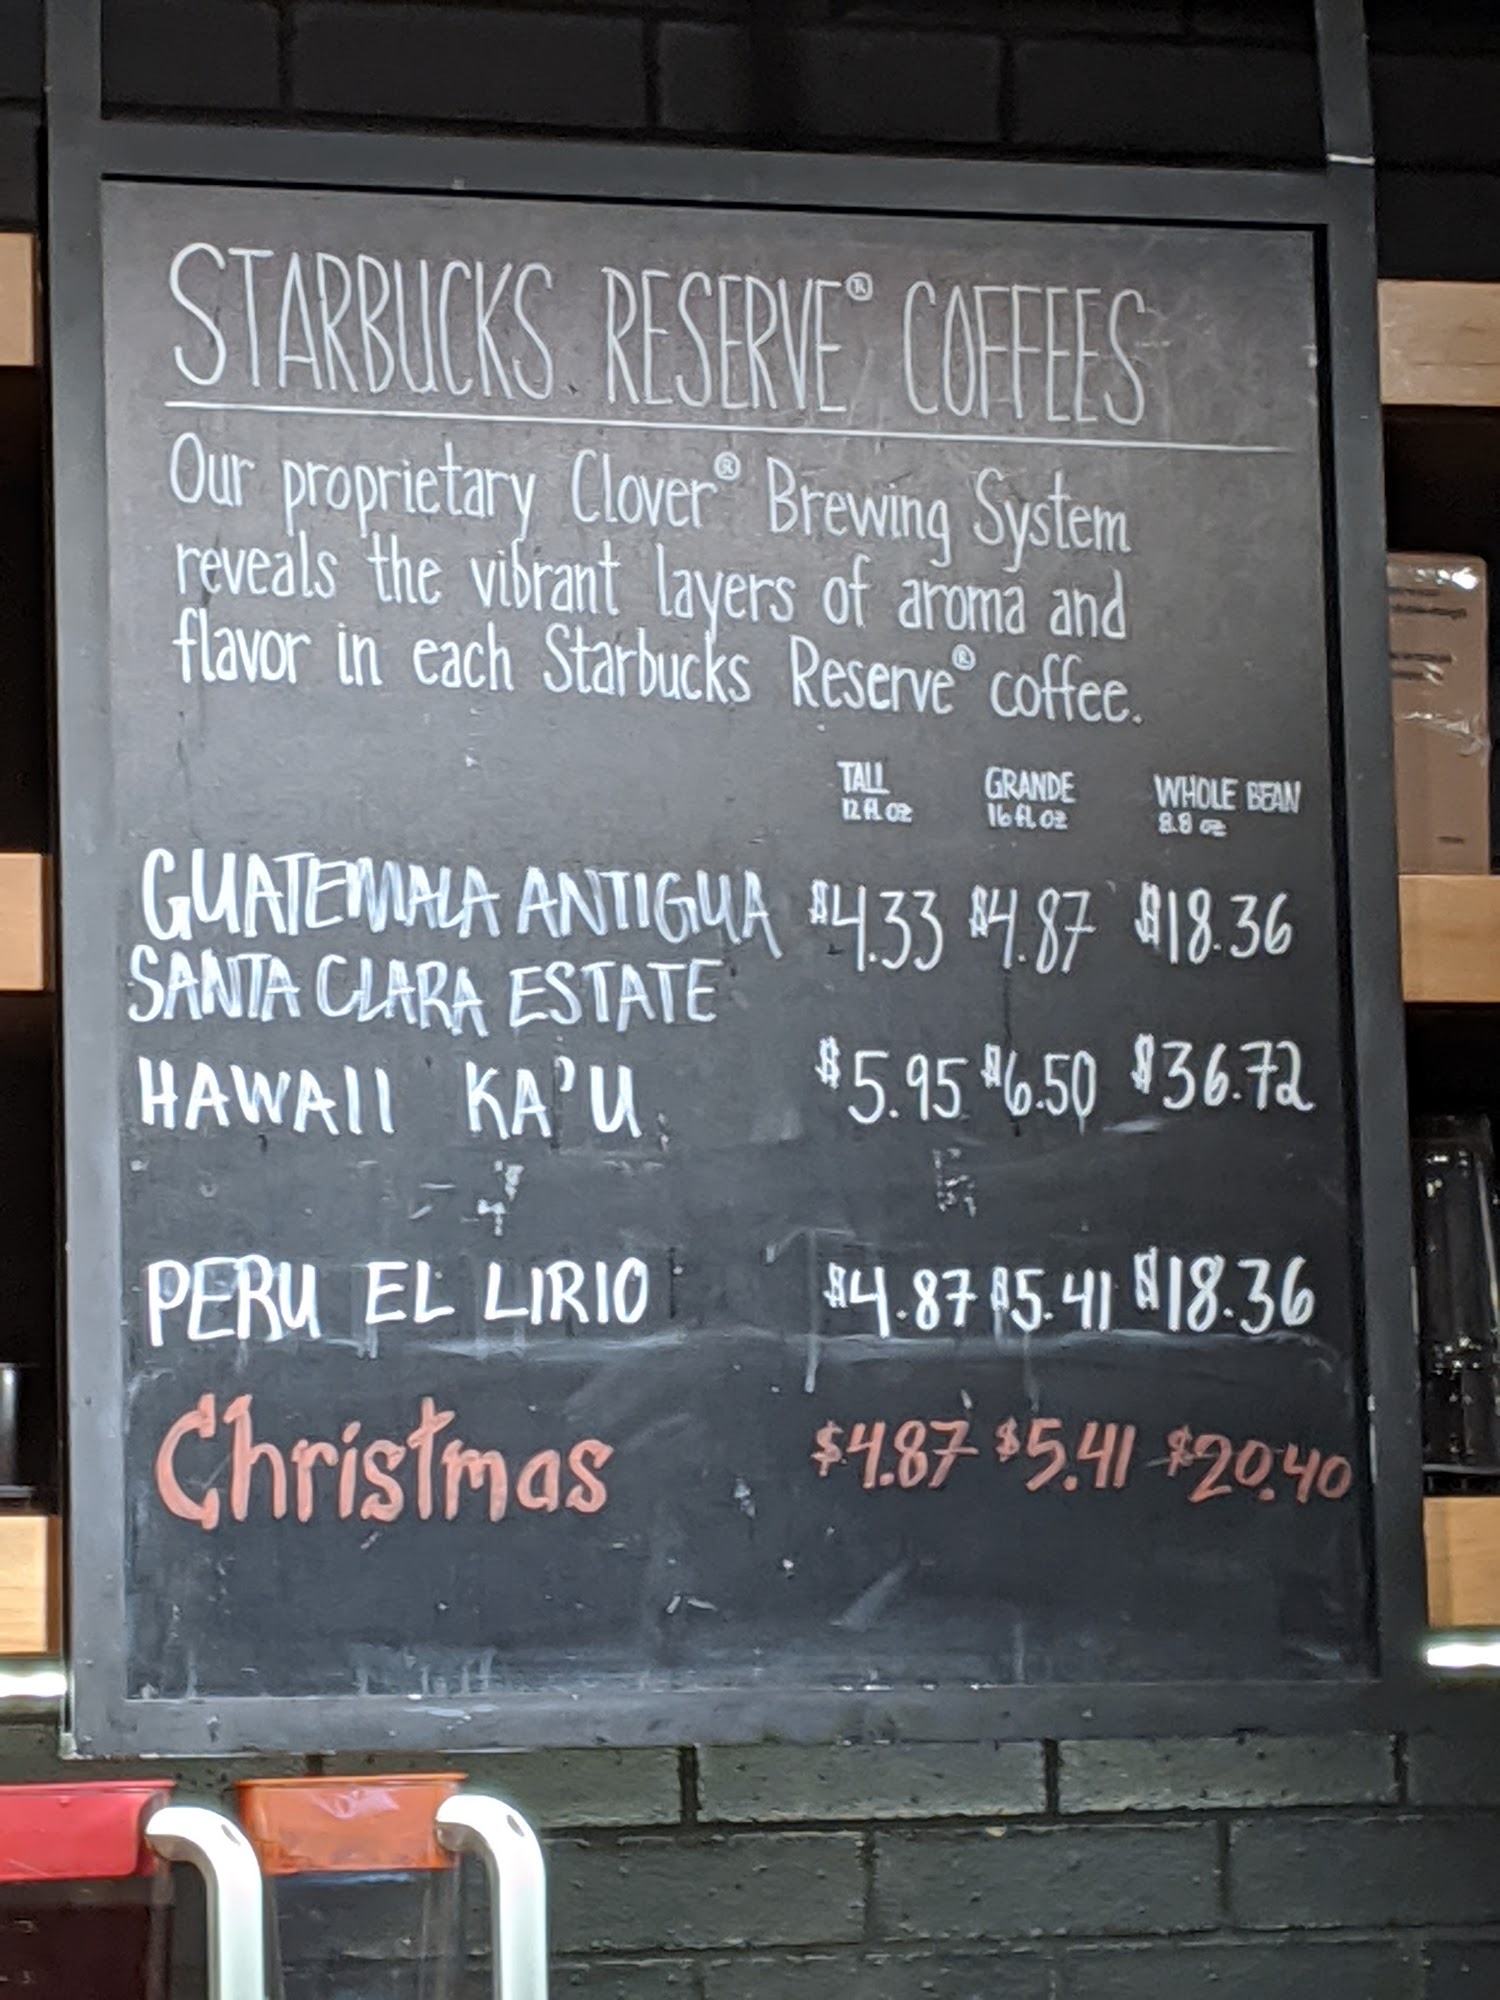 STARBUCKS RESERVE® COFFEES
Our proprietary Clover® Brewing System
reveals the vibrant layers of aroma and
flavor in each Starbucks Reserve® coffee.
TALL GRANDE WHOLE BEAN
12 fl oz 16 fl oz 8.8 oz
GUATEMALA ANTIGUA $4.33 $4.87 $18.36
SANTA CLARA ESTATE
HAWAII KA'U $5.95 $6.50 $36.72
PERU EL LIRIO $4.87 $5.41 $18.36
Christmas $4.87 $5.41 $20.40